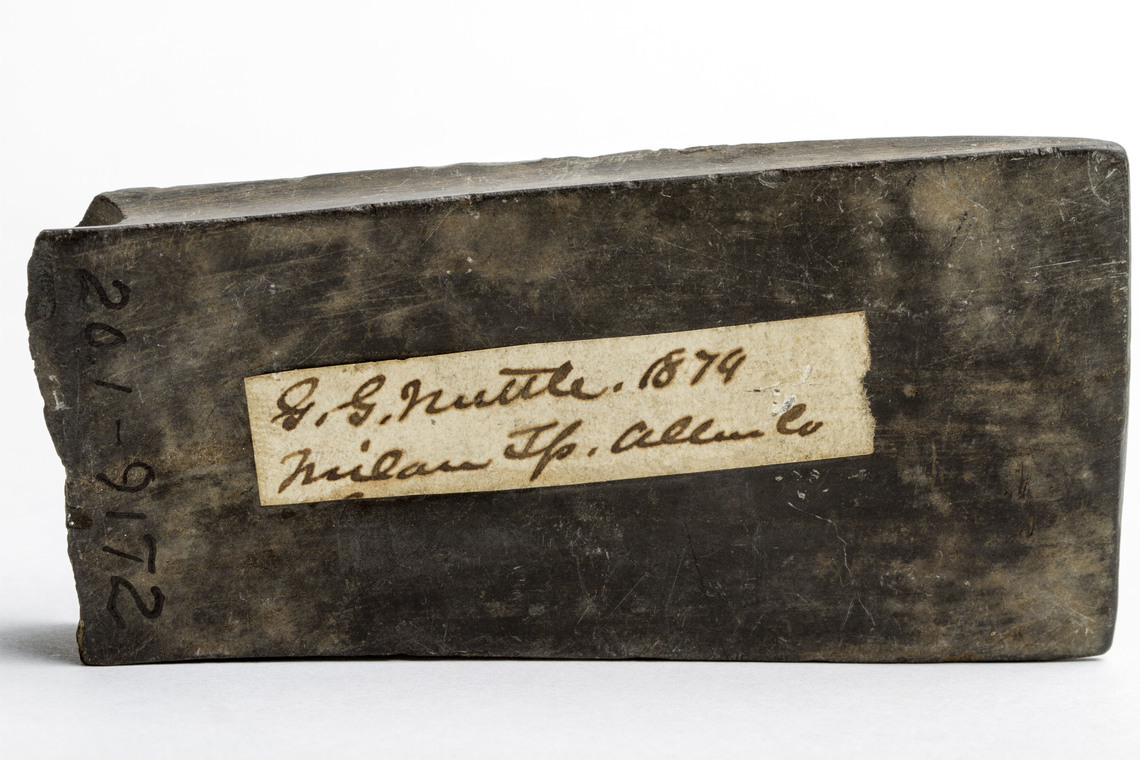 20.1-9172
G. G. Nuttle. 1879
Milan Tp. Allen Co